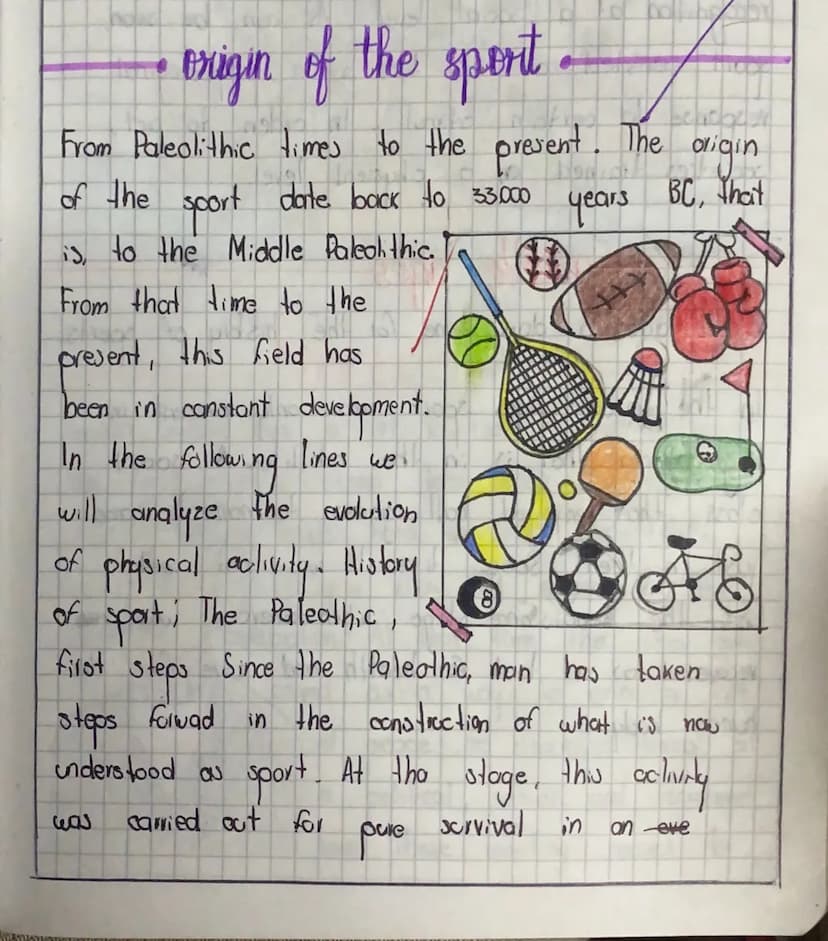 origin of the sport
From Paleolithic times to the present. The origin
of the sport date back to 33000 years BC, that
is, to the Middle Paleohthic.
From that time to the
present, this field has
been in constant development.
In the following lines we
will analyze the evolution
of physical activity. History
of sport; The Paleothic,
first steps Since the Paleothic, man has taken
steps forwad in the constuction of what is now
understood as sport. At tho stage, this activity
was carried out for pure survival in an eve
8